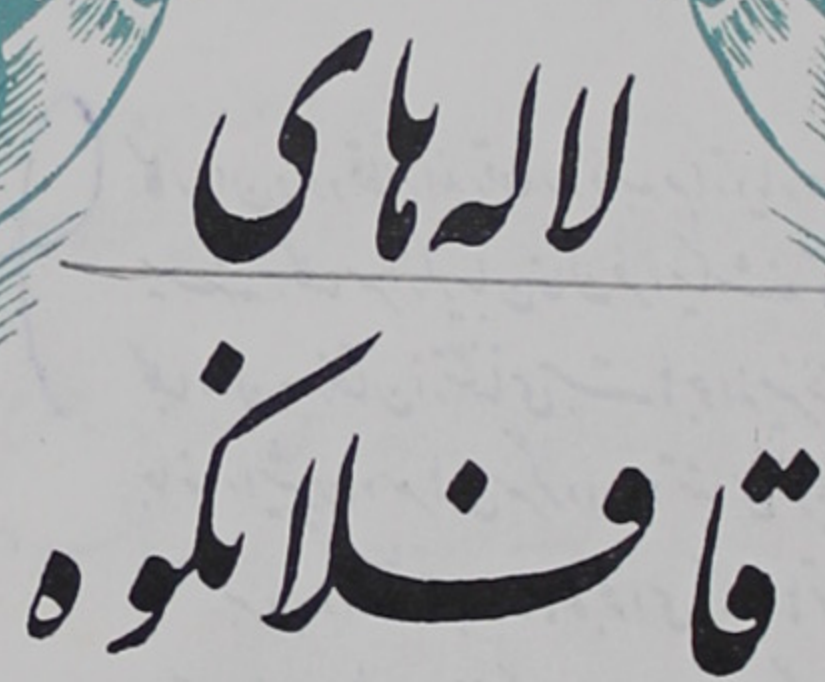 لاله های
قافلانکوه